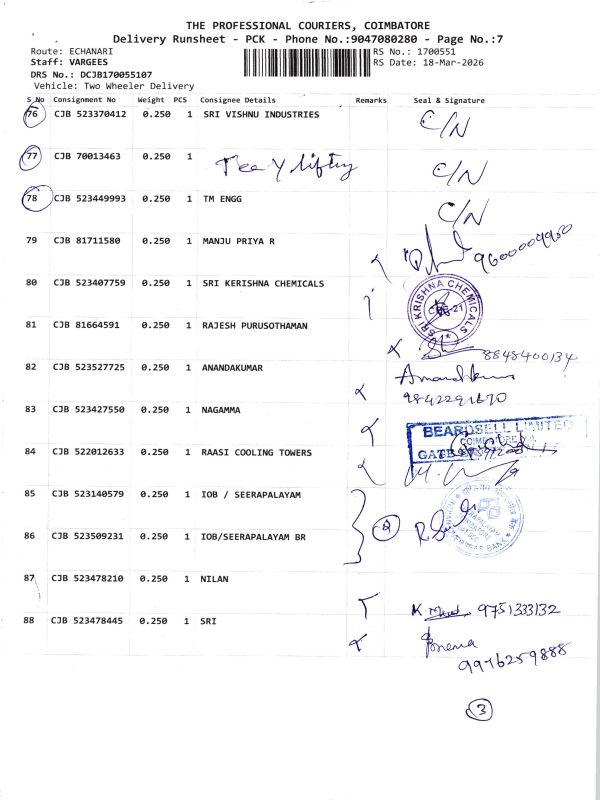 THE PROFESSIONAL COURIERS, COIMBATORE
Delivery Runsheet - PCK - Phone No.:9047080280 - Page No.:7
Route: ECHANARI RS No.: 1700551
Staff: VARGEES RS Date: 18-Mar-2026
DRS No.: DCJB170055107
Vehicle: Two Wheeler Delivery
S No Consignment No Weight PCS Consignee Details Remarks Seal & Signature
76 CJB 523370412 0.250 1 SRI VISHNU INDUSTRIES C/N
77 CJB 70013463 0.250 1 C/N
78 CJB 523449993 0.250 1 TM ENGG C/N
79 CJB 81711580 0.250 1 MANJU PRIYA R 9600009950
80 CJB 523407759 0.250 1 SRI KERISHNA CHEMICALS
SRI KRISHNA CHEMICALS
81 CJB 81664591 0.250 1 RAJESH PURUSOTHAMAN
8848400134
82 CJB 523527725 0.250 1 ANANDAKUMAR
9842291670
83 CJB 523427550 0.250 1 NAGAMMA
BEARDSELL LIMITED
84 CJB 522012633 0.250 1 RAASI COOLING TOWERS
85 CJB 523140579 0.250 1 IOB / SEERAPALAYAM
86 CJB 523509231 0.250 1 IOB/SEERAPALAYAM BR
87 CJB 523478210 0.250 1 NILAN
K 9751333132
88 CJB 523478445 0.250 1 SRI
Prema
9976259888
3